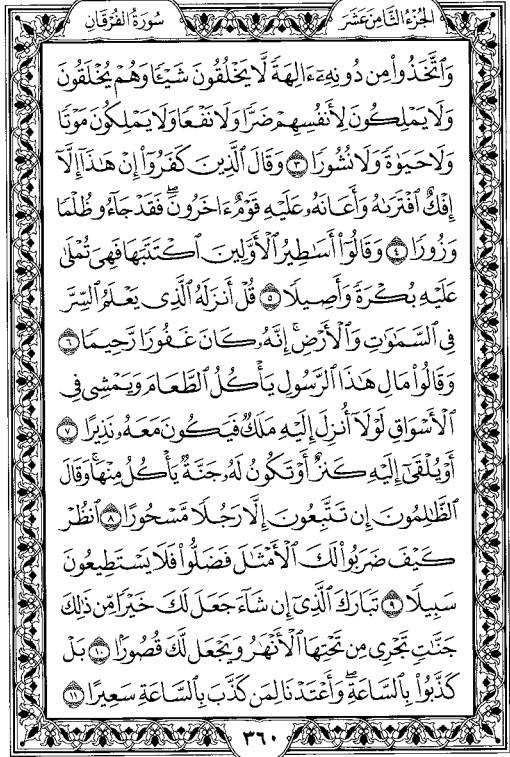 الجزء الثامن عشر
سورة الفرقان
وَٱتَّخَذُوا۟ مِن دُونِهِۦٓ ءَالِهَةً لَّا يَخْلُقُونَ شَيْـًٔا وَهُمْ يُخْلَقُونَ
وَلَا يَمْلِكُونَ لِأَنفُسِهِمْ ضَرًّا وَلَا نَفْعًا وَلَا يَمْلِكُونَ مَوْتًا
وَلَا حَيَوٰةً وَلَا نُشُورًا ٣ وَقَالَ ٱلَّذِينَ كَفَرُوٓا۟ إِنْ هَـٰذَآ إِلَّآ
إِفْكٌ ٱفْتَرَىٰهُ وَأَعَانَهُۥ عَلَيْهِ قَوْمٌ ءَاخَرُونَ ۖ فَقَدْ جَآءُو ظُلْمًا
وَزُورًا ٤ وَقَالُوٓا۟ أَسَـٰطِيرُ ٱلْأَوَّلِينَ ٱكْتَتَبَهَا فَهِىَ تُمْلَىٰ
عَلَيْهِ بُكْرَةً وَأَصِيلًا ٥ قُلْ أَنزَلَهُ ٱلَّذِى يَعْلَمُ ٱلسِّرَّ
فِى ٱلسَّمَـٰوَٰتِ وَٱلْأَرْضِ ۚ إِنَّهُۥ كَانَ غَفُورًا رَّحِيمًا ٦
وَقَالُوا۟ مَالِ هَـٰذَا ٱلرَّسُولِ يَأْكُلُ ٱلطَّعَامَ وَيَمْشِى فِى
ٱلْأَسْوَاقِ ۙ لَوْلَآ أُنزِلَ إِلَيْهِ مَلَكٌ فَيَكُونَ مَعَهُۥ نَذِيرًا ٧
أَوْ يُلْقَىٰٓ إِلَيْهِ كَنزٌ أَوْ تَكُونُ لَهُۥ جَنَّةٌ يَأْكُلُ مِنْهَا ۚ وَقَالَ
ٱلظَّـٰلِمُونَ إِن تَتَّبِعُونَ إِلَّا رَجُلًا مَّسْحُورًا ٨ ٱنظُرْ
كَيْفَ ضَرَبُوا۟ لَكَ ٱلْأَمْثَـٰلَ فَضَلُّوا۟ فَلَا يَسْتَطِيعُونَ
سَبِيلًا ٩ تَبَارَكَ ٱلَّذِىٓ إِن شَآءَ جَعَلَ لَكَ خَيْرًا مِّن ذَٰلِكَ
جَنَّـٰتٍ تَجْرِى مِن تَحْتِهَا ٱلْأَنْهَـٰرُ وَيَجْعَل لَّكَ قُصُورًۢا ١٠ بَلْ
كَذَّبُوا۟ بِٱلسَّاعَةِ ۖ وَأَعْتَدْنَا لِمَن كَذَّبَ بِٱلسَّاعَةِ سَعِيرًا ١١
٣٦٠